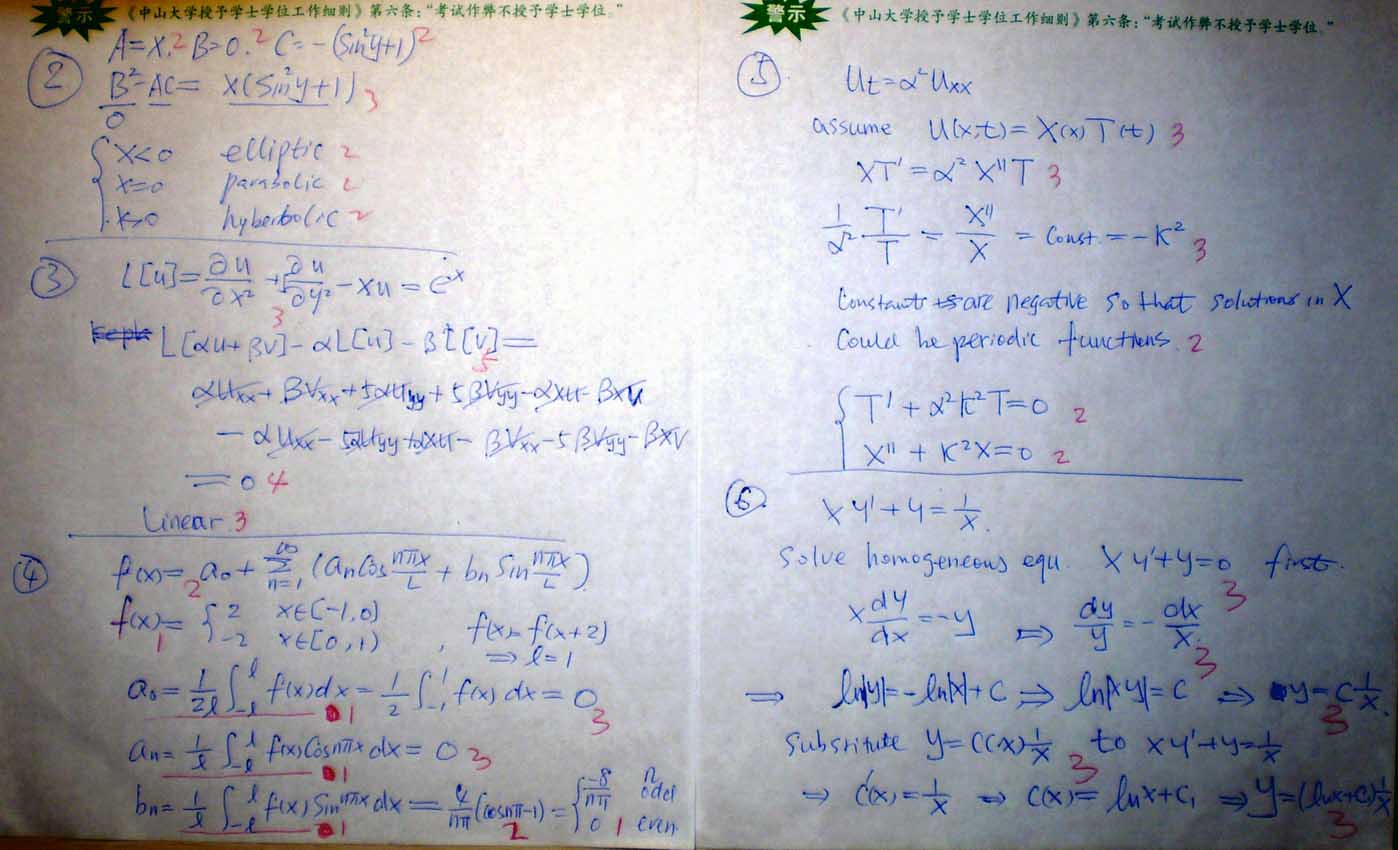 警示 《中山大学授予学士学位工作细则》第六条:“考试作弊不授予学士学位。”
② A=X. 2 B=0. 2 C=-(Sin²y+1) 2
B²-AC= X(Sin²y+1) 3
0
X<0 elliptic 2
X=0 parabolic 2
X>0 hyberbolic 2
③ L[u]=∂u/∂x²+5∂u/∂y²-xu=e^x
3
L[αu+βv]-αL[u]-βL[v]=
5
αUxx+βVxx+5αUyy+5βVyy-αxu-βxv
-αUxx-5αUyy+αxu-βVxx-5βVyy-βXV
=0 4
Linear 3
④ f(x)=a₀+∑_{n=1}^{∞}(aₙCos nπx/L+bₙSin nπx/L)
2
f(x)={ 2 x∈(-1,0)
-2 x∈[0,1) , f(x)=f(x+2)
1 ⇒ l=1
a₀=1/2l ∫_{-l}^{l} f(x)dx=1/2 ∫_{-1}^{1} f(x)dx=0
1 3
aₙ=1/l ∫_{-l}^{l} f(x)Cosnπx dx=0 3
1
bₙ=1/l ∫_{-l}^{l} f(x)Sin nπx dx=4/nπ(cosnπ-1)={ -8/nπ n odd
0 1 even
1 2
警示 《中山大学授予学士学位工作细则》第六条:“考试作弊不授予学士学位。”
⑤. Ut=α²Uxx
assume U(x,t)=X(x)T(t) 3
XT'=α²X''T 3
1/α² T'/T = X''/X = Const.=-K² 3
Constants are negative so that solutions in X
Could be periodic functions. 2
T'+α²K²T=0 2
X''+K²X=0 2
⑥. Xy'+y=1/x.
Solve homogeneous equ. Xy'+y=0 first.
3
x dy/dx=-y ⇒ dy/y=-dx/x.
3
⇒ ln|y|=-ln|x|+C ⇒ ln|xy|=C ⇒ y=C 1/x.
3
Substitute y=C(x)1/x to xy'+y=1/x
3
⇒ C'(x)=1/x ⇒ C(x)=lnx+C₁ ⇒ y=(lnx+C₁)1/x
3